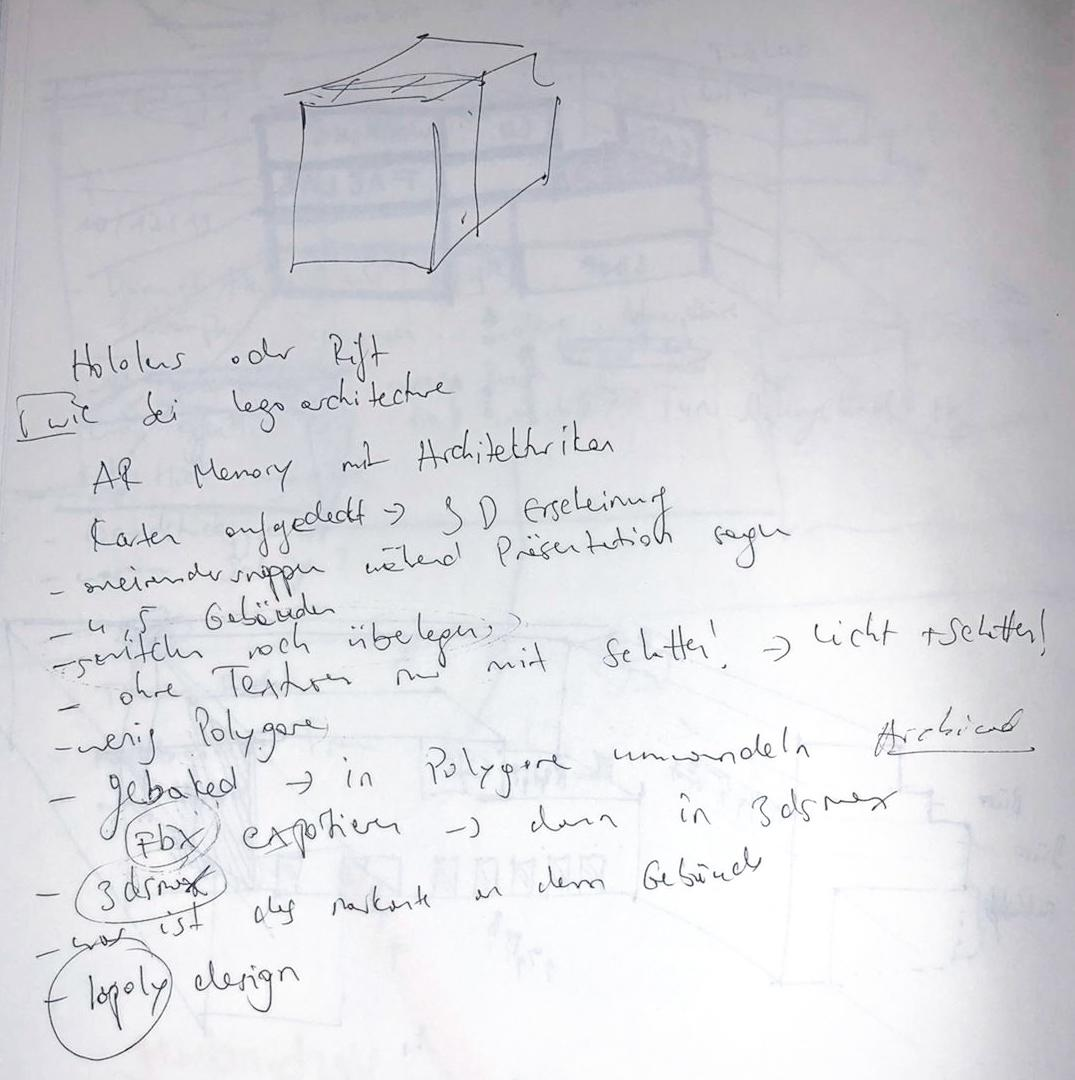 Hololens oder Rift
wie bei lego architecture
AR Memory mit
Karten aufgedeckt → 3D Erscheinung
- während Präsentation sagen
- 4, 5 Gebäuden
- noch überlegen
- ohne Texturen nur mit Schatten! → Licht + Schatten!
- wenig Polygone
- gebaked → in Polygone umwandeln Archicad
Fbx exportieren → dann in 3dsmax
- 3dsmax
- was ist das markante an dem Gebäude
- lopoly design